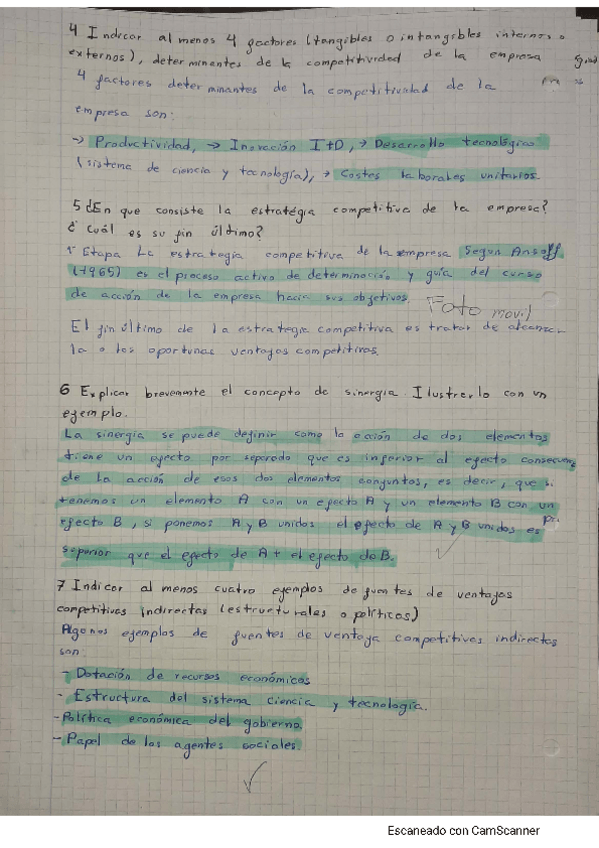 4 Indicar al menos 4 factores (tangibles o intangibles internos o
externos), determinantes de la competitividad de la empresa
4 factores determinantes de la competitividad de la
empresa son:
-> Productividad, -> Inovación I+D, -> Desarrollo tecnológico
(sistema de ciencia y tecnología), -> Costes laborales unitarios.
5 ¿En que consiste la estratégia competitiva de la empresa?
¿Cuál es su fin último?
1ª Etapa La estrategia competitiva de la empresa Segun Ansoff
(1965) es el proceso activo de determinación y guía del curso
de acción de la empresa hacia sus objetivos. Foto movil
El fin último de la estrategia competitiva es tratar de alcanzar
la o las oportunas ventajas competitivas.
6 Explicar brevemente el concepto de sinergia. Ilustrerlo con un
ejemplo.
La sinergia se puede definir como la acción de dos elementos
tiene un efecto por separado que es inferior al efecto
de la acción de esos dos elementos conjuntos, es decir, que si
tenemos un elemento A con un efecto A y un elemento B con un
efecto B, si ponemos A y B unidos el efecto de A y B unidos es
superior que el efecto de A + el efecto de B.
7 Indicar al menos cuatro ejemplos de fuentes de ventajas
competitivas indirectas (estructurales o políticas)
Algunos ejemplos de fuentes de ventaja competitivas indirectas
son:
- Dotación de recursos económicos
- Estructura del sistema ciencia y tecnología.
- Política económica del gobierno.
- Papel de los agentes sociales.
Escaneado con CamScanner